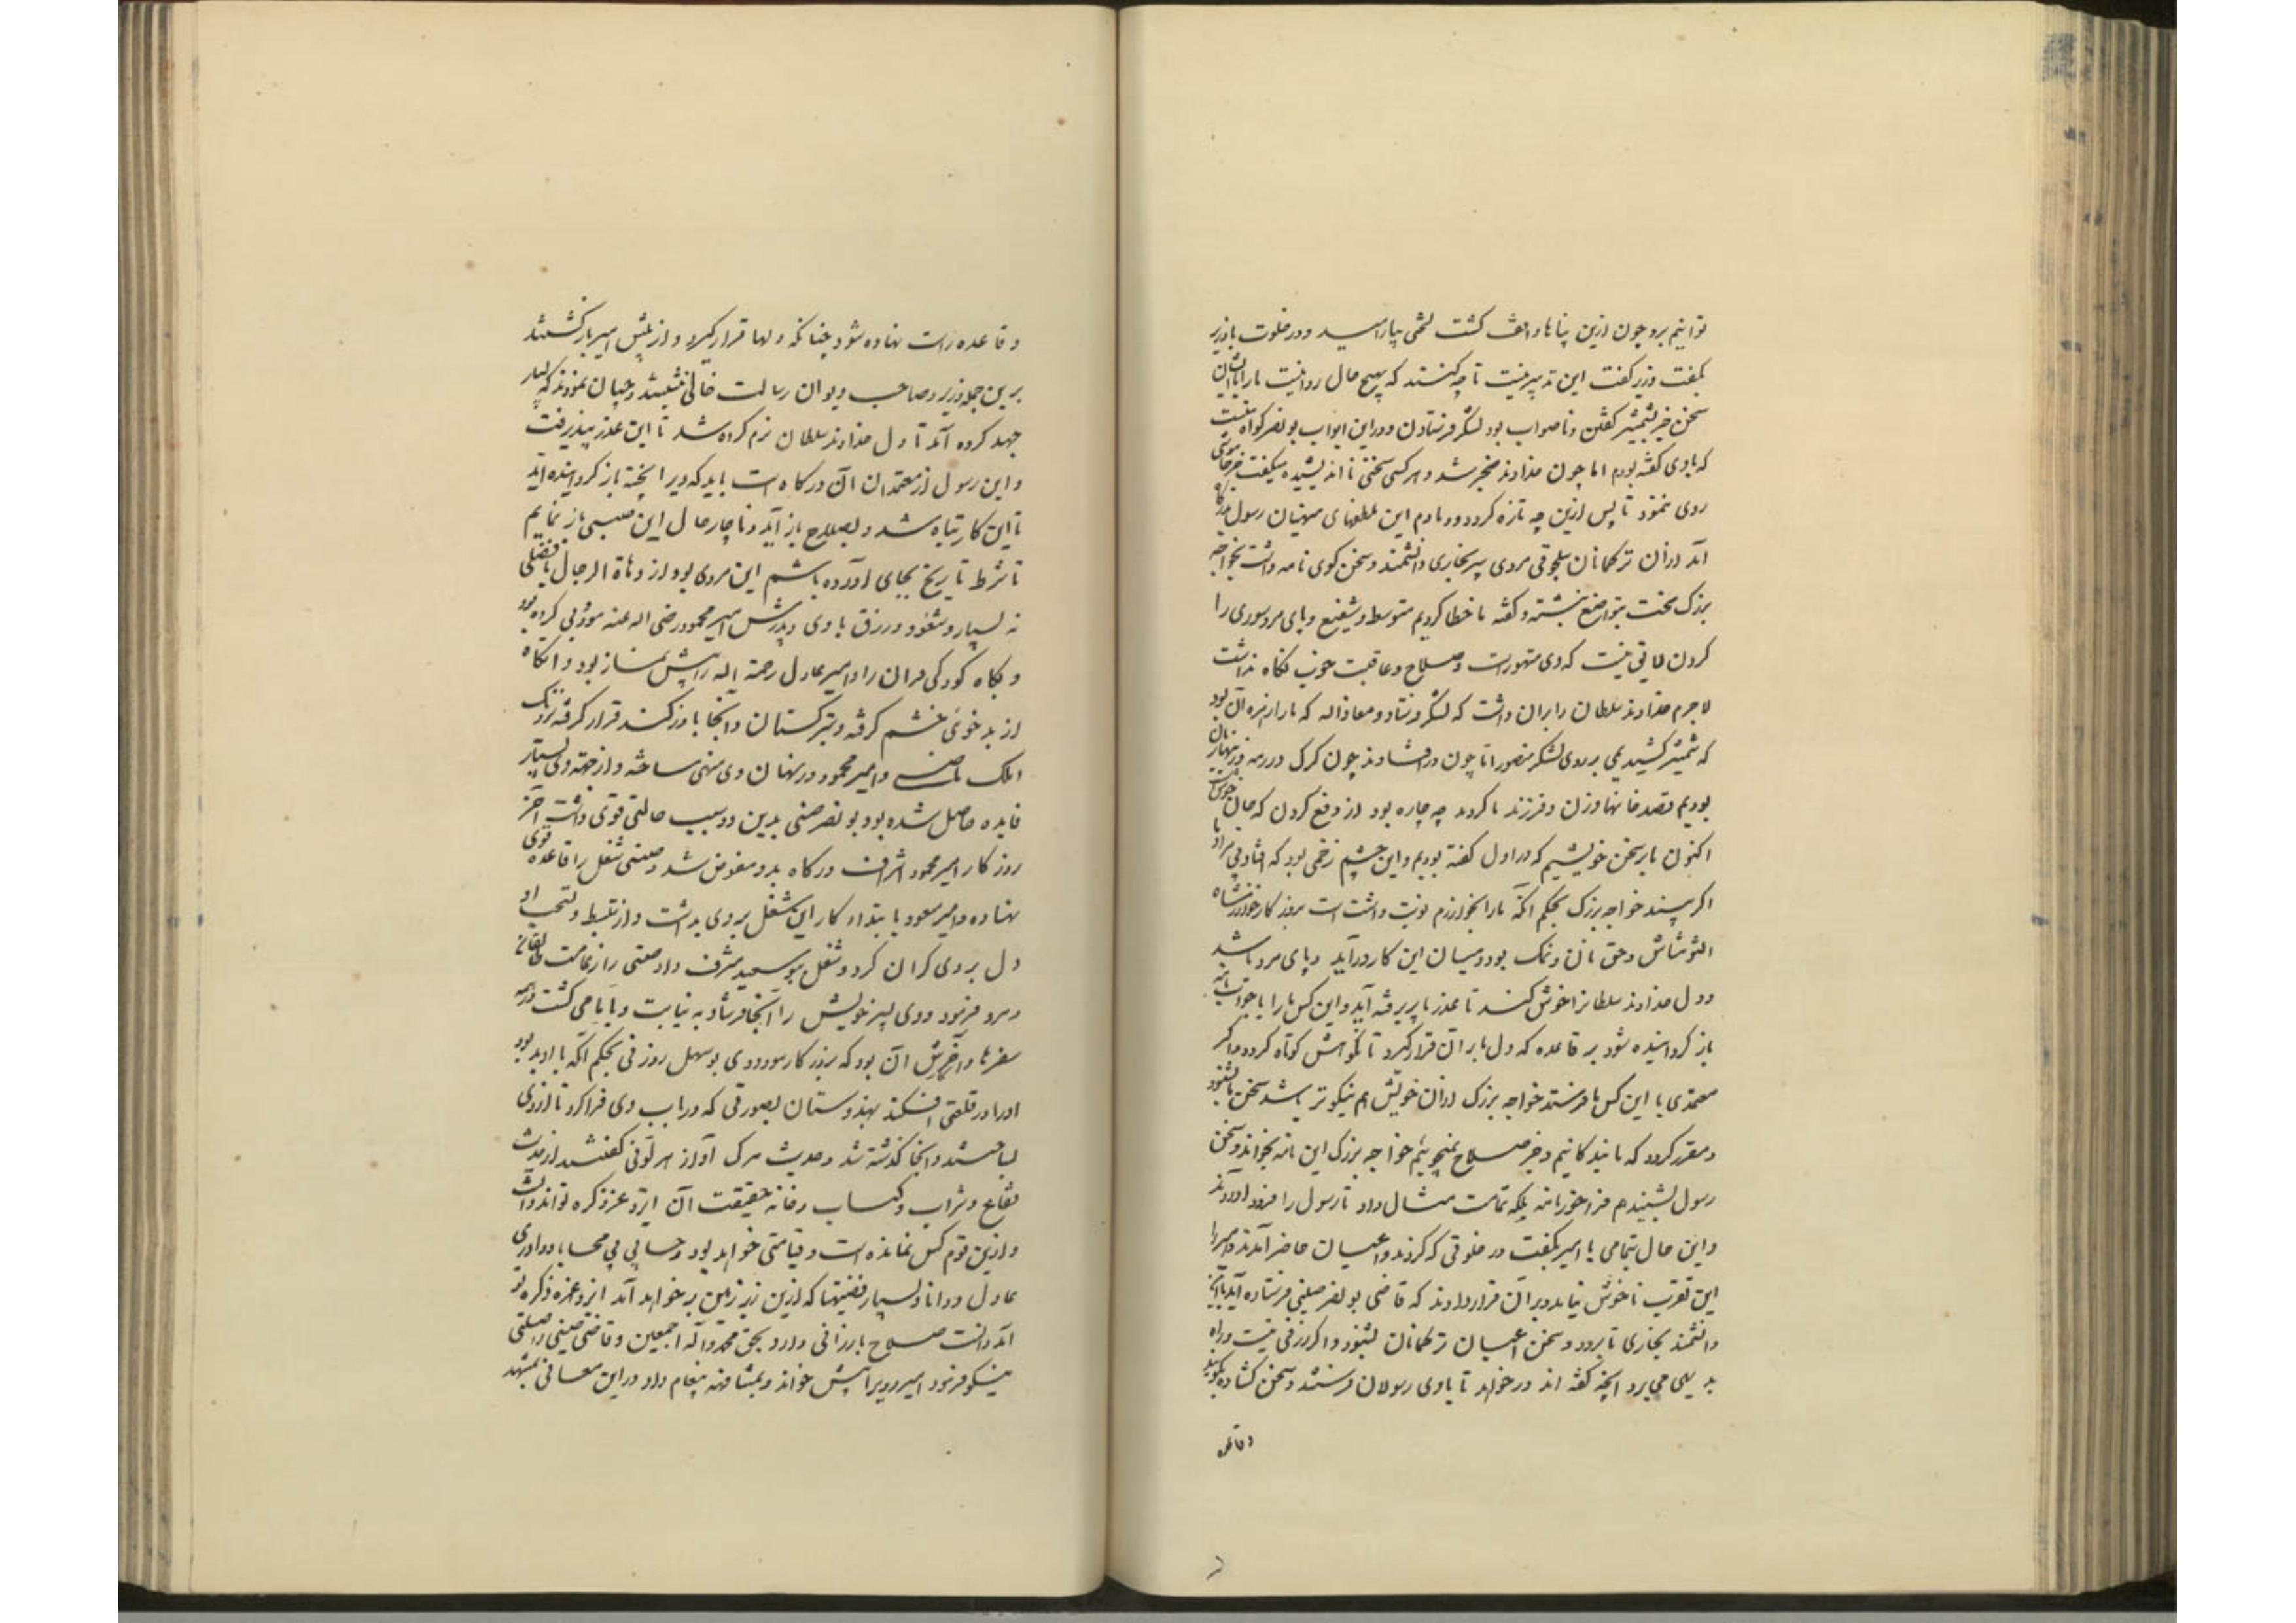 توانیم برد چون ازین پیغامها واقف گشت لختی بیارامید و در خلوت با وزیر
بگفت وزیر گفت این تدبیر نیست تا چه کنند که بهیچ حال روا نیست ما را با ایشان
سخن جز بشمشیر گفتن و ناصواب بود لشکر فرستادن و درین ابواب بونصر گواه منست
که با وی گفته بودم اما چون خداوند ضجر شد و هر کسی سختی نااندیشیده میگفت جز خاموشی
روی نبود تا پس ازین چه تازه گردد و دمادم این غلطهای منهیان رسول درگاه
آمد ازان ترکمانان سلجوقی مردی پیر بخاری دانشمند و سخن گوی نامه داشت بخواجه
بزرگ سخت بتواضع نبشته و گفته ما خطا کردیم متوسط و شفیع و پای مرد سوری را
کردن لایق نیست که وی متهورست و صلاح و عاقبت خوب نگاه نداشت
لاجرم خداوند سلطان را بران داشت که لشکر فرستاد و معاذ اله که ما را زهره آن بود
که شمشیر کشیدیمی بر روی لشکر منصور اما چون درافتادند چون گرگ در رمه و زینهاریان
بودیم قصد خانها و زن و فرزند ما کردند چه چاره بود از دفع کردن که جان خوش است
اکنون ما بر سخن خویشیم که در اول گفته بودیم و این چشم زخمی بود که افتاد بی مراد ما
اگر بیند خواجه بزرگ بحکم آنکه ما را بخوارزم نوبت داشت است بروزگار خوارزمشاه
التونتاش و حق نان و نمک بوده میان این کار درآید و پای مرد باشد
و دل خداوند سلطانرا خوش کند تا عذر ما پذیرفته آید و این کس ما را با جواب نامه
باز گردانیده شود بر قاعده که دل ما بر آن قرار گیرد تا نکوهش کوتاه گردد و اگر
معتمدی با این کس ما فرستد خواجه بزرگ ازان خویش هم نیکوتر باشد سخن ما بشنود
و مقرر گردد که ما بندگانیم و جز صلاح نمیجوییم خواجه بزرگ این نامه بخواند و سخن
رسول بشنید هم فراخور نامه بلکه تمامت مثال داد تا رسول را فرود آوردند
و این حال بتمامی با امیر بگفت در خلوتی که کردند و اعیان حاضر آمدند و امیر را
این تقرب ناخوش نیامد و بر آن قرار دادند که قاضی بونصر صینی فرستاده آید با این
دانشمند بخاری تا برود و سخن اعیان ترکمانان بشنود و اگر زرقی نیست و راه
بدیهی می برد آنچه گفته اند درخواهد تا با وی رسولان فرستند و سخن گشاده بگویند
و قاعده
و قاعده راست نهاده شود چنانکه دلها قرار گیرد و از پیش امیر بازگشتند
برین جمله وزیر و صاحب دیوان رسالت خالی بنشستند و چنان نمودند که بسیار
جهد کرده آمد تا دل خداوند سلطان نرم کرده شد تا این عذر بپذیرفت
و این رسول از معتمدان آن درگاه است باید که ویرا پخته باز گردانیده آید
تا این کار تباه شده بصلاح باز آید و ناچار حال این صینی باز نمایم
تا شرط تاریخ بجای آورده باشم این مردی بود از دهاة الرجال با فضلی
نه بسیار و شغوده و زرق با وی و پدرش امیر محمود رضی اله عنه مؤدبی کرده بود
و بگاه کودکی قران را و امیر عادل رحمة اله را پیش نماز بود و آنگاه
از بد خوئی خشم گرفته و بترکستان و آنجا باوزکند قرار گرفته نزدیک
ایلک ماضی و امیر محمود در نهان وی منهی ساخته و از جهة وی بسیار
فایده حاصل شده بود بو نصر صینی بدین دو سبب حالتی قوی داشت و آخر
روزگار امیر محمود اشراف درگاه بدو مفوض شد و صینی شغل را قاعده قوی
نهاده و امیر مسعود بابتداء کار این شغل بر وی بداشت و از تبسط و تسحب او
دل بر وی گران کرد و شغل ببوسعید مشرف داد و صینی را زعامت طالقان
و مرو فرمود و وی پسر خویش را آنجا فرستاد به نیابت و با ما می گشت در همه
سفرها و آخرش آن بود که بروزگار مودودی بوسهل زوزنی بحکم آنکه با او بد بود
او را در قلعتی افکند بهندوستان بصورتی که در باب وی فراکرد تا از وی
بساختند و آنجا گذشته شد و حدیث مرگ او از هر لونی گفتند از حدیث
فقاع و شراب و کباب و خانه حقیقت آن ایزد عز ذکره تواند دانست
و ازین قوم کس نمانده است و قیامتی خواهد بود و حسابی بی محابا و داوری
عادل و دانا و بسیار فضیحتها که ازین زیر زمین برخواهد آمد ایزد عزه ذکره تو
آمد دانست صلاح با رزانی دارد بحق محمد و آله اجمعین و قاضی صینی را صلتی
نیکو فرمود امیر و ویرا پیش خواند و بمشافهه پیغام داد در این معانی بمشهد